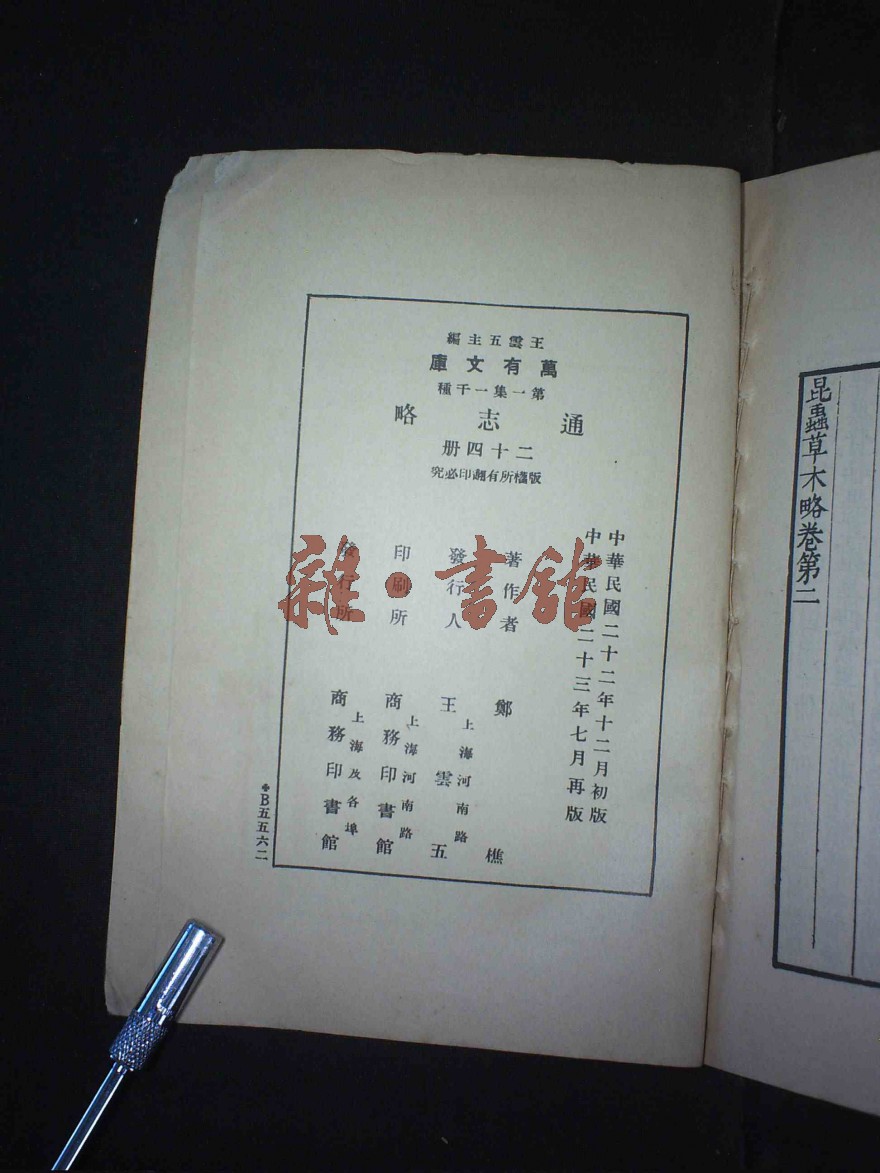 王雲五主編
萬有文庫
第一集一千種
通志略
二十四册
版權所有翻印必究
中華民國二十二年十二月初版
中華民國二十三年七月再版
著作者 鄭樵
發行人 王雲五
上海河南路
印刷所 商務印書館
上海河南路
發行所 商務印書館
上海及各埠
B五五六二
昆蟲草木略卷第二
雜·書館